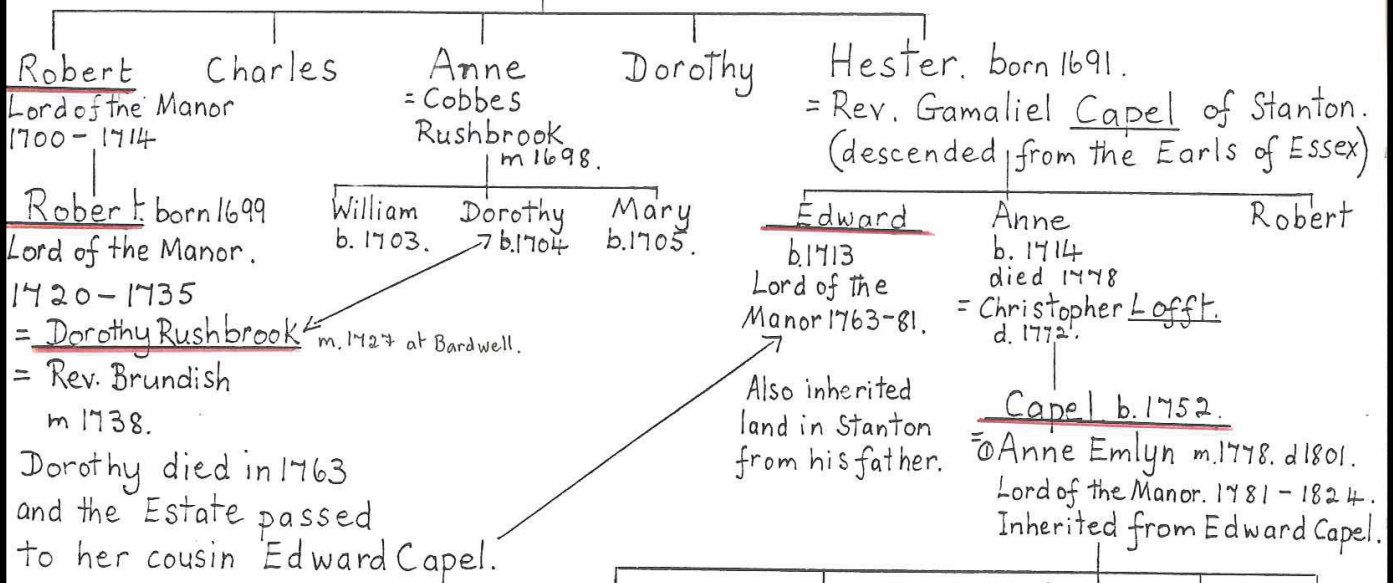 Robert
Lord of the Manor
1700 - 1714
Charles
Anne
= Cobbes
Rushbrook
m 1698.
Dorothy
Hester. born 1691.
= Rev. Gamaliel Capel of Stanton.
(descended from the Earls of Essex)
Robert. born 1699
Lord of the Manor.
1720 - 1735
= Dorothy Rushbrook m. 1727 at Bardwell.
= Rev. Brundish
m 1738.
Dorothy died in 1763
and the Estate passed
to her cousin Edward Capel.
William
b. 1703.
Dorothy
b. 1704
Mary
b. 1705.
Edward
b. 1713
Lord of the
Manor 1763-81.
Also inherited
land in Stanton
from his father.
Anne
b. 1714
died 1778
= Christopher Lofft.
d. 1772.
Robert
Capel b. 1752.
= ① Anne Emlyn m. 1778. d 1801.
Lord of the Manor. 1781 - 1824.
Inherited from Edward Capel.